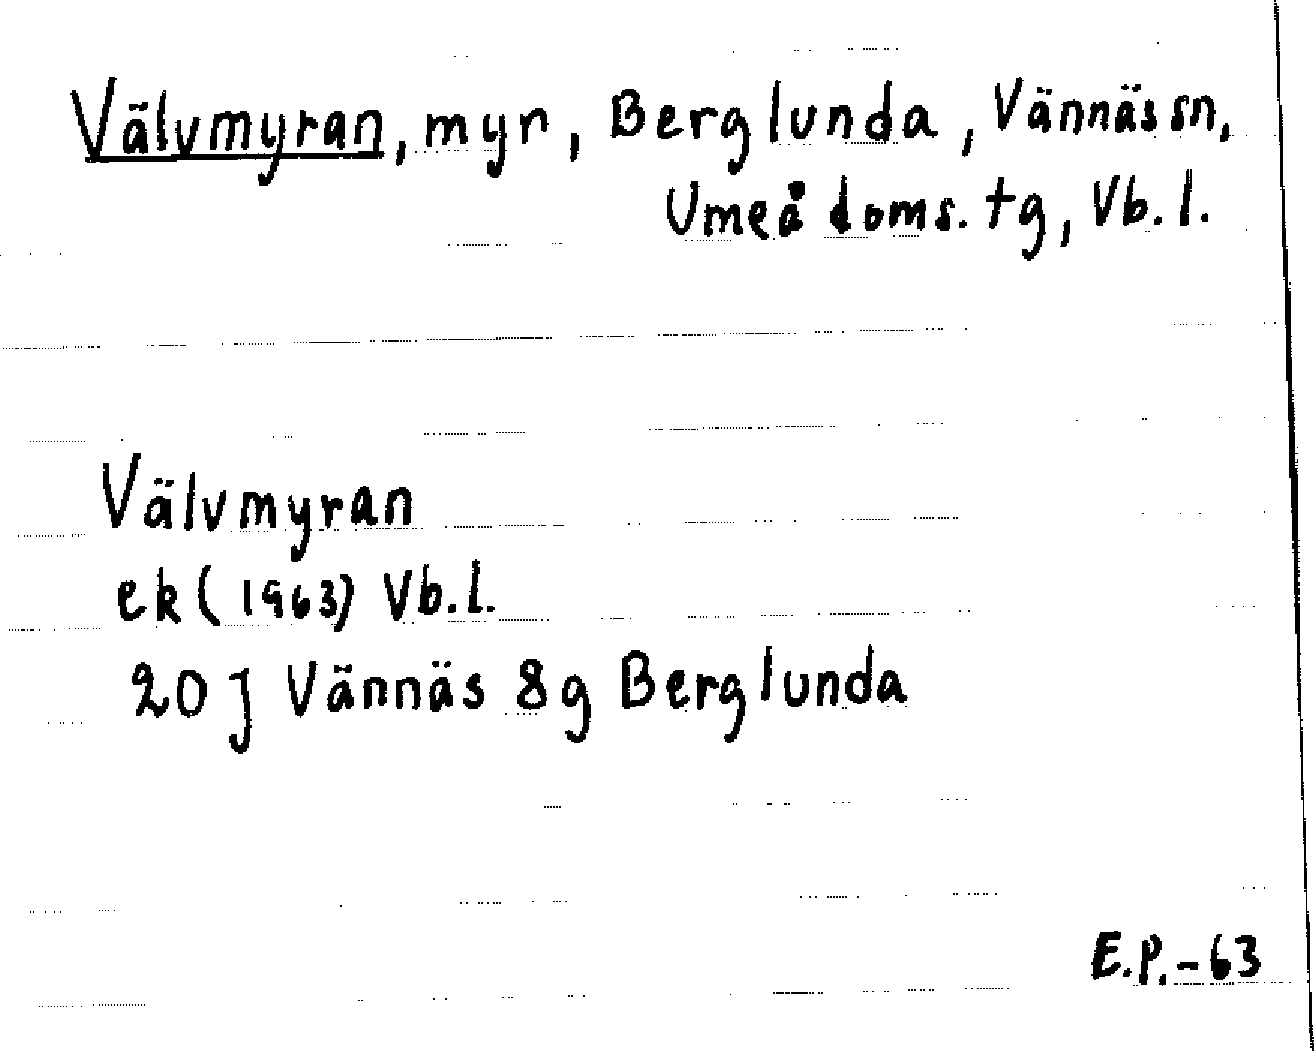 Välvmyran, myr, Berglunda, Vännäs sn,
Umeå doms. tg, Vb. l.
Välvmyran
ek (1963) Vb.l.
20 J Vännäs 8g Berglunda
E.P.-63